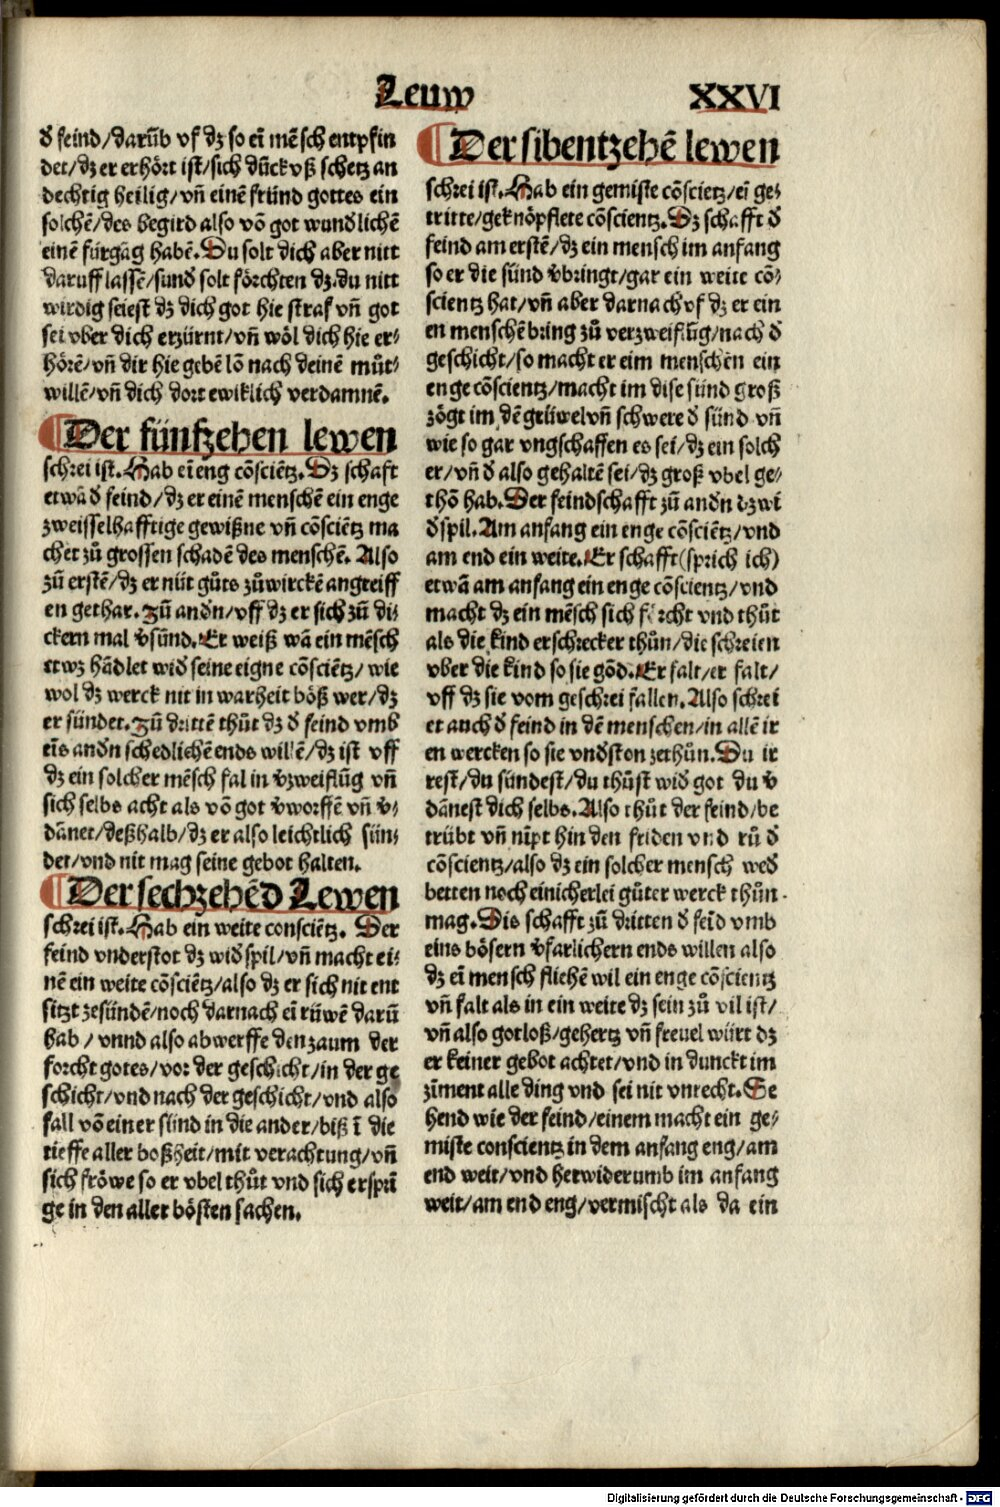 Leuw
XXVI
đ feind/darūb vf dz so eī mēsch entpfin
det/dz er erhört ist/sich dūck vß schetz an
dechtig heilig/vñ einē fründ gottes ein
solchē/des begird also vō got wunđlichē
einē fürgāg habē. Du solt dich aber nitt
daruff lassē/sunđ solt förchten dz du nitt
wirdig seiest dz dich got hie straf vñ got
sei vber dich erzürnt/vñ wöl dich hie er⸗
hörē/vñ dir hie gebē lō nach deinē můt⸗
willē/vñ dich dort ewiklich verdamnē.
Der fünfzehen lewen
schrei ist. Hab eī eng cōsciētz. Dz schaft
etwā đ feind/dz er einē menschē ein enge
zweisselhafftige gewißne vñ cōsciētz ma
chet zů grossen schadē des menschē. Also
zů erstē/dz er nüt gůts zůwirckē angreiff
en gethar. Zů anđn/vff dz er sich zů di⸗
ckern mal v̄sünd. Er weiß wā ein mēsch
ettwz hādlet wiđ seine eigne cōsciētz/wie
wol dz werck nit in warheit böß wer/dz
er sündet. Zů drittē thůt dz đ feind vmb
eīs anđn schedlichē ends willē/dz ist vff
dz ein solcher mēsch fal in v̄zweiflūg vñ
sich selbs acht als vō got v̄worffē vñ v̄⸗
dānet/deßhalb/dz er also leichtlich sün⸗
det/vnd nit mag seine gebot halten.
Der sechzehēd Lewen
schrei ist. Hab ein weite consciētz. Der
feind vnderstot dz widspil/vñ macht ei⸗
nē ein weite cōsciētz/also dz er sich nit ent
sitzt zesündē/noch darnach eī rüwē darū
hab/vnnd also abwerffe den zaum der
forcht gotes/vor der geschicht/in der ge
schicht/vnd nach der geschicht/vnd also
fall vō einer sünd in die ander/biß ī die
tieffe aller boßheit/mit verachtung/vñ
sich fröwe so er vbel thůt vnd sich ersprī
ge in den aller bösten sachen.
Der sibentzehē lewen
schrei ist. Hab ein gemiste cōscietz/eī ge⸗
tritte/geknöpflete cōscientz. Dz schafft đ
feind am erstē/dz ein mensch im anfang
so er die sünd v̄bringt/gar ein weite cō⸗
scientz hat/vñ aber darnach vf dz er ein
en menschē bring zů verzweiflūg/nach đ
geschicht/so macht er eim menschen ein
enge cōscientz/macht im dise sünd groß
zögt im dē grüwel vñ schwere đ sünd vñ
wie so gar vngschaffen es sei/dz ein solch
er/vñ đ also gehaltē sei/dz groß vbel ge⸗
thō hab. Der feind schafft zů anđn dz wi
đspil. Am anfang ein enge cōsciētz/vnd
am end ein weite. Er schafft (sprich ich)
etwā am anfang ein enge cōscientz/vnd
macht dz ein mēsch sich förcht vnd thůt
als die kind erschrecker thůn/die schreien
vber die kind so sie gōd. Er falt/er falt/
vff dz sie vom geschrei fallen. Also schrei
et auch đ feind in dē menschen/in allē ir
en wercken so sie vndston zethůn. Du ir
rest/du sündest/du thůst wiđ got du v̄
dānest dich selbs. Also thůt der feind/be
trübt vñ nīpt hin den friden vnd rů đ
cōscientz/also dz ein solcher mensch weđ
betten noch einicherlei gůter werck thůn
mag. Dis schafft zů dritten đ feīd vmb
eins bösern v̄farlichern ends willen also
dz eī mensch fliehē wil ein enge cōscientz
vñ falt als in ein weite dz sein zů vil ist/
vñ also gotloß/gehertz vñ freuel würt dz
er keiner gebot achtet/vnd in dunckt im
zīment alle ding vnd sei nit vnrecht. Se
hend wie der feind/einem macht ein ge⸗
miste conscientz in dem anfang eng/am
end weit/vnd herwiderumb im anfang
weit/am end eng/vermischt als da ein
Digitalisierung gefördert durch die Deutsche Forschungsgemeinschaft - DFG